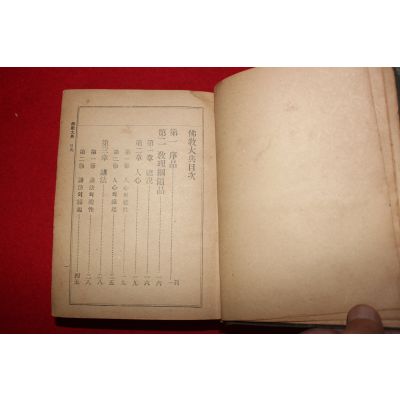 佛教大典目次
第一 序品 一頁
第二 教理綱領品 一六
第一章 總說 一六
第二章 人心 一九
第一節 人心의體性 一九
第二節 人心의緣起 二五
第三章 諸法 二八
第一節 諸法의體性 二八
第二節 諸法의緣起 四五
佛教大典 目次